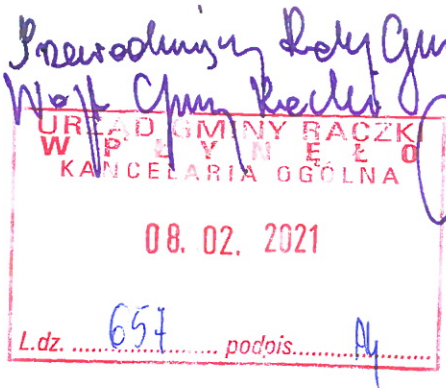 Przewodniczący Rady Gm
Wójt Gminy Raczki
URZĄD GMINY RACZKI
WPŁYNĘŁO
KANCELARIA OGÓLNA
08. 02. 2021
L.dz. ..... 657 ..... podpis.....